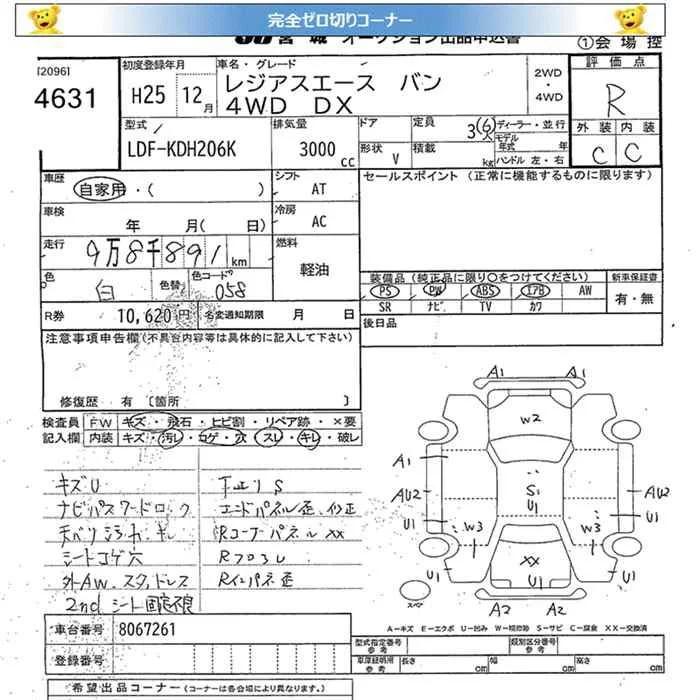 完全ゼロ切りコーナー
JU 宮城 オークション出品申込書
①会場控
[2096]
4631
初度登録年月
H25 12月
車名・グレード
レジアスエース バン
4WD DX
2WD
・
4WD
評価点
R
外装 内装
C C
型式
LDF-KDH206K
排気量
3000cc
ドア
形状 V
定員 3(6)人
積載 kg
ディーラー・並行
モデル年式 年
ハンドル 左・右
車歴
自家用・( )
シフト
AT
車検
年 月( 日)
冷房
AC
走行
9万8千891km
燃料
軽油
色
白
色替
色コード
058
R券 10,620円 名変通知期限 月 日
セールスポイント (正常に機能するものに限ります)
装備品(純正品に限り○をつけてください)
新車保証書
PS PW ABS エアB AW
SR ナビ TV カワ
有・無
後日品
注意事項申告欄(不具合内容等は具体的に記入して下さい)
修復歴 有 〔箇所 〕
検査員記入欄
FW キズ・飛石・ヒビ割・リペア跡・×要
内装 キズ・汚レ・コゲ・穴・スレ・キレ・破レ
キズU
ナビパスワードロック
シートコゲ穴
外AW スタッドレス
2nd シート固定痕
下廻りS
エンドパネル歪、修正
RコーナーパネルXX
Rフロアし
Rインパネ歪
A1 A1
W2
A1
AU2
U1
S1
U1
AU2
U1
W3 W3
XX
U1
U1 U1
A2 A2
スペア
A−キズ E−エクボ U−凹み W−補修跡 S−サビ C−腐食 XX−交換済
車台番号 8067261
登録番号
型式指定番号 参考
類別区分番号 参考
車庫証明用 参考 長さ cm 幅 cm 高さ cm
希望出品コーナー (コーナーは各会場により異なります。)